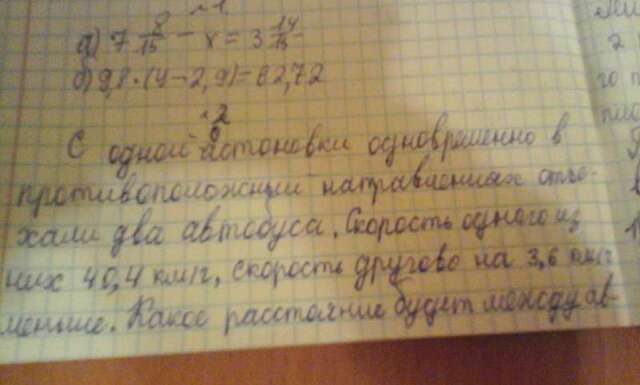 №1
а) 7 8/15 - x = 3 14/15
б) 9,8·(y-2,9)=62,72
№2
С одной остоновки одновременно в
противоположный направлениях отъе-
хали два автобуса. Скорость одного из
них 40,4 км/г, скорость другово на 3,6 км/г
меньше. Какое расстояние будет между ав-
2
го